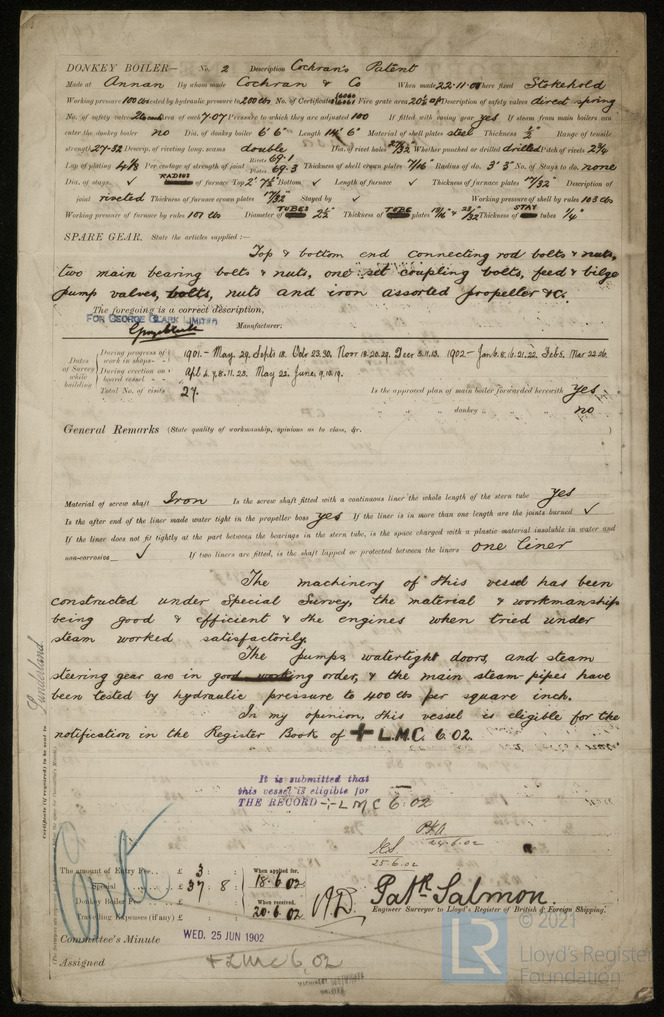 DONKEY BOILER— No. 2 Description Cochran's Patent
Made at Annan By whom made Cochran & Co When made 22·11·01 Where fixed Stokehold
Working pressure 100 lbs tested by hydraulic pressure to 200 lbs No. of Certificate Fire grate area 20½ Description of safety valves direct spring
No. of safety valves 2 Area of each 7·07 Pressure to which they are adjusted 100 If fitted with easing gear yes If steam from main boilers can
enter the donkey boiler no Dia. of donkey boiler 6' 6" Length 14' 6" Material of shell plates steel Thickness ½" Range of tensile
strength 27-32 Descrip. of riveting long. seams double Dia. of rivet holes 27/32 Whether punched or drilled drilled Pitch of rivets 2¾
Lap of plating 4⅛ Per centage of strength of joint Rivets 69·1 Plates 69·3 Thickness of shell crown plates 9/16" Radius of do. 3' 3" No. of Stays to do. none
Dia. of stays. ✓ RADIUS of furnace Top 2' 7½" Bottom ✓ Length of furnace ✓ Thickness of furnace plates 17/32" Description of
joint riveted Thickness of furnace crown plates 17/32" Stayed by ✓ Working pressure of shell by rules 103 lbs
Working pressure of furnace by rules 107 lbs Diameter of TUBES 2½" Thickness of TUBE plates & 23/32" Thickness of STAY tubes ¼"
SPARE GEAR. State the articles supplied:—
Top & bottom end connecting rod bolts & nuts,
two main bearing bolts & nuts, one set coupling bolts, feed & bilge
pump valves, bolts, nuts and iron assorted propeller &c.
The foregoing is a correct description,
FOR GEORGE CLARK LIMITED
Manufacturer.
Dates of Survey while building
During progress of work in shops— 1901.— May. 29. Sept. 18. Oct. 23.30. Nov. 18.20.29. Dec. 5.11.13. 1902— Jan. 6.8.16.21.22. Feb. 5. Mar 22.26.
During erection on board vessel— Apl 2.7.8.11.23. May 22. June. 9.12.19.
Total No. of visits 27. Is the approved plan of main boiler forwarded herewith yes
" " " donkey " " " no
General Remarks (State quality of workmanship, opinions as to class, &c.
Material of screw shaft Iron Is the screw shaft fitted with a continuous liner the whole length of the stern tube yes
Is the after end of the liner made water tight in the propeller boss yes If the liner is in more than one length are the joints burned ✓
If the liner does not fit tightly at the part between the bearings in the stern tube, is the space charged with a plastic material insoluble in water and
non-corrosive ✓ If two liners are fitted, is the shaft lapped or protected between the liners one liner
The machinery of this vessel has been
constructed under Special Survey, the material & workmanship
being good & efficient & the engines when tried under
steam worked satisfactorily.
The pumps, watertight doors, and steam
steering gear are in good working order, & the main steam pipes have
been tested by hydraulic pressure to 400 lbs per square inch.
In my opinion, this vessel is eligible for the
notification in the Register Book of + L.M.C. 6.02.
It is submitted that
this vessel is eligible for
THE RECORD + LMC 6·02
24·6·02
25·6·02
The amount of Entry Fee.. £ 3 : : When applied for,
Special £ 37 : 8 : 18·6·02
Donkey Boiler Fee £ : : When received,
Travelling Expenses (if any) £ : : 20·6·02
Patk. Salmon.
Engineer Surveyor to Lloyd's Register of British & Foreign Shipping.
Committee's Minute WED. 25 JUN 1902
Assigned + LMC 6,02
Sunderland
Certificate (if required) to be sent to
© 2021
LR
Lloyd's Register
Foundation